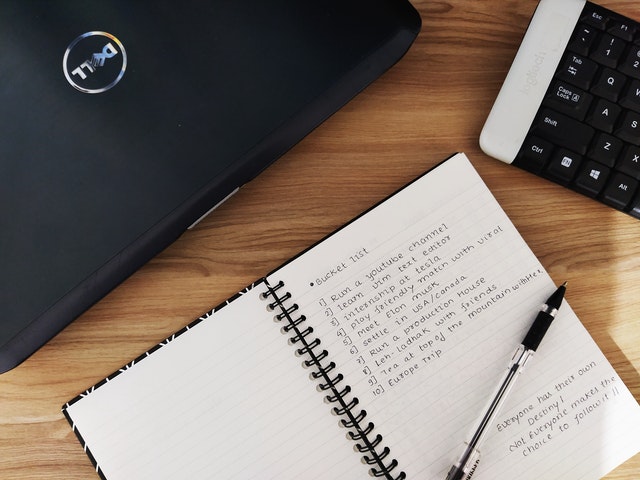 DELL
logitech
Esc
F1
~
`
!
1
2
Tab
Q
Caps Lock
A
A
S
Shift
Z
X
Ctrl
Alt
• Bucket list
1] Run a youtube channel
2] learn vim text editor
3] Internship at tesla
4] Play friendly match with viral
5] Meet Elon musk
6] settle in USA/canada
7] Run a production house
8] Leh-ladhak with friends
9] Tea at top of the mountain with
10] Europe Trip
Everyone has their own
Destiny!
Not Everyone makes the
choice to follow it!!